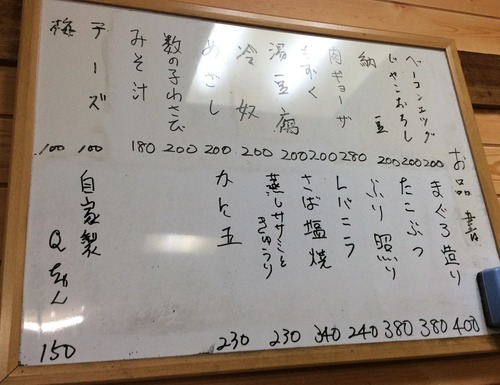 お品書
ベーコンエッグ 200
じゃこおろし 200
納豆 200
肉ギョーザ 280
もずく 200
湯豆腐 200
冷奴 200
めざし 200
数の子わさび 200
みそ汁 180
チーズ 100
梅 100
まぐろ造り 400
たこぶつ 380
ぶり照り 380
レバニラ 240
さば塩焼 340
蒸しササミと
きゅうり 230
かに玉 230
自家製
Qちゃん 150